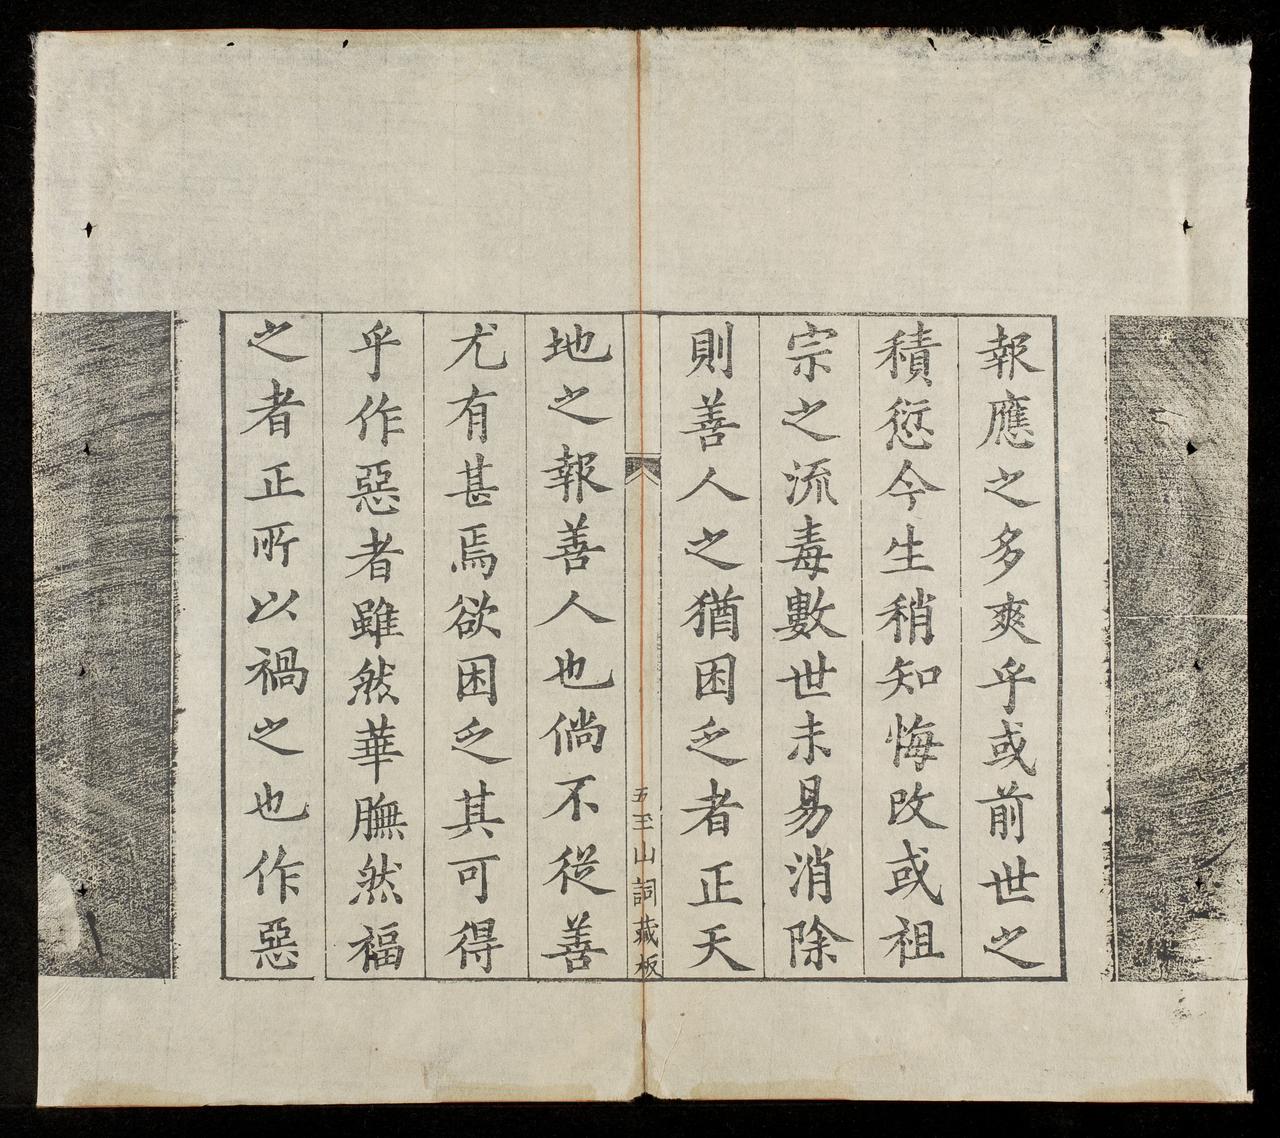 報應之多爽乎或前世之
積愆今生稍知悔改或祖
宗之流毒數世未易消除
則善人之猶困乏者正天
五至山詞藏板
地之報善人也倘不從善
尤有甚焉欲困乏其可得
乎作惡者雖然華膴然福
之者正所以禍之也作惡